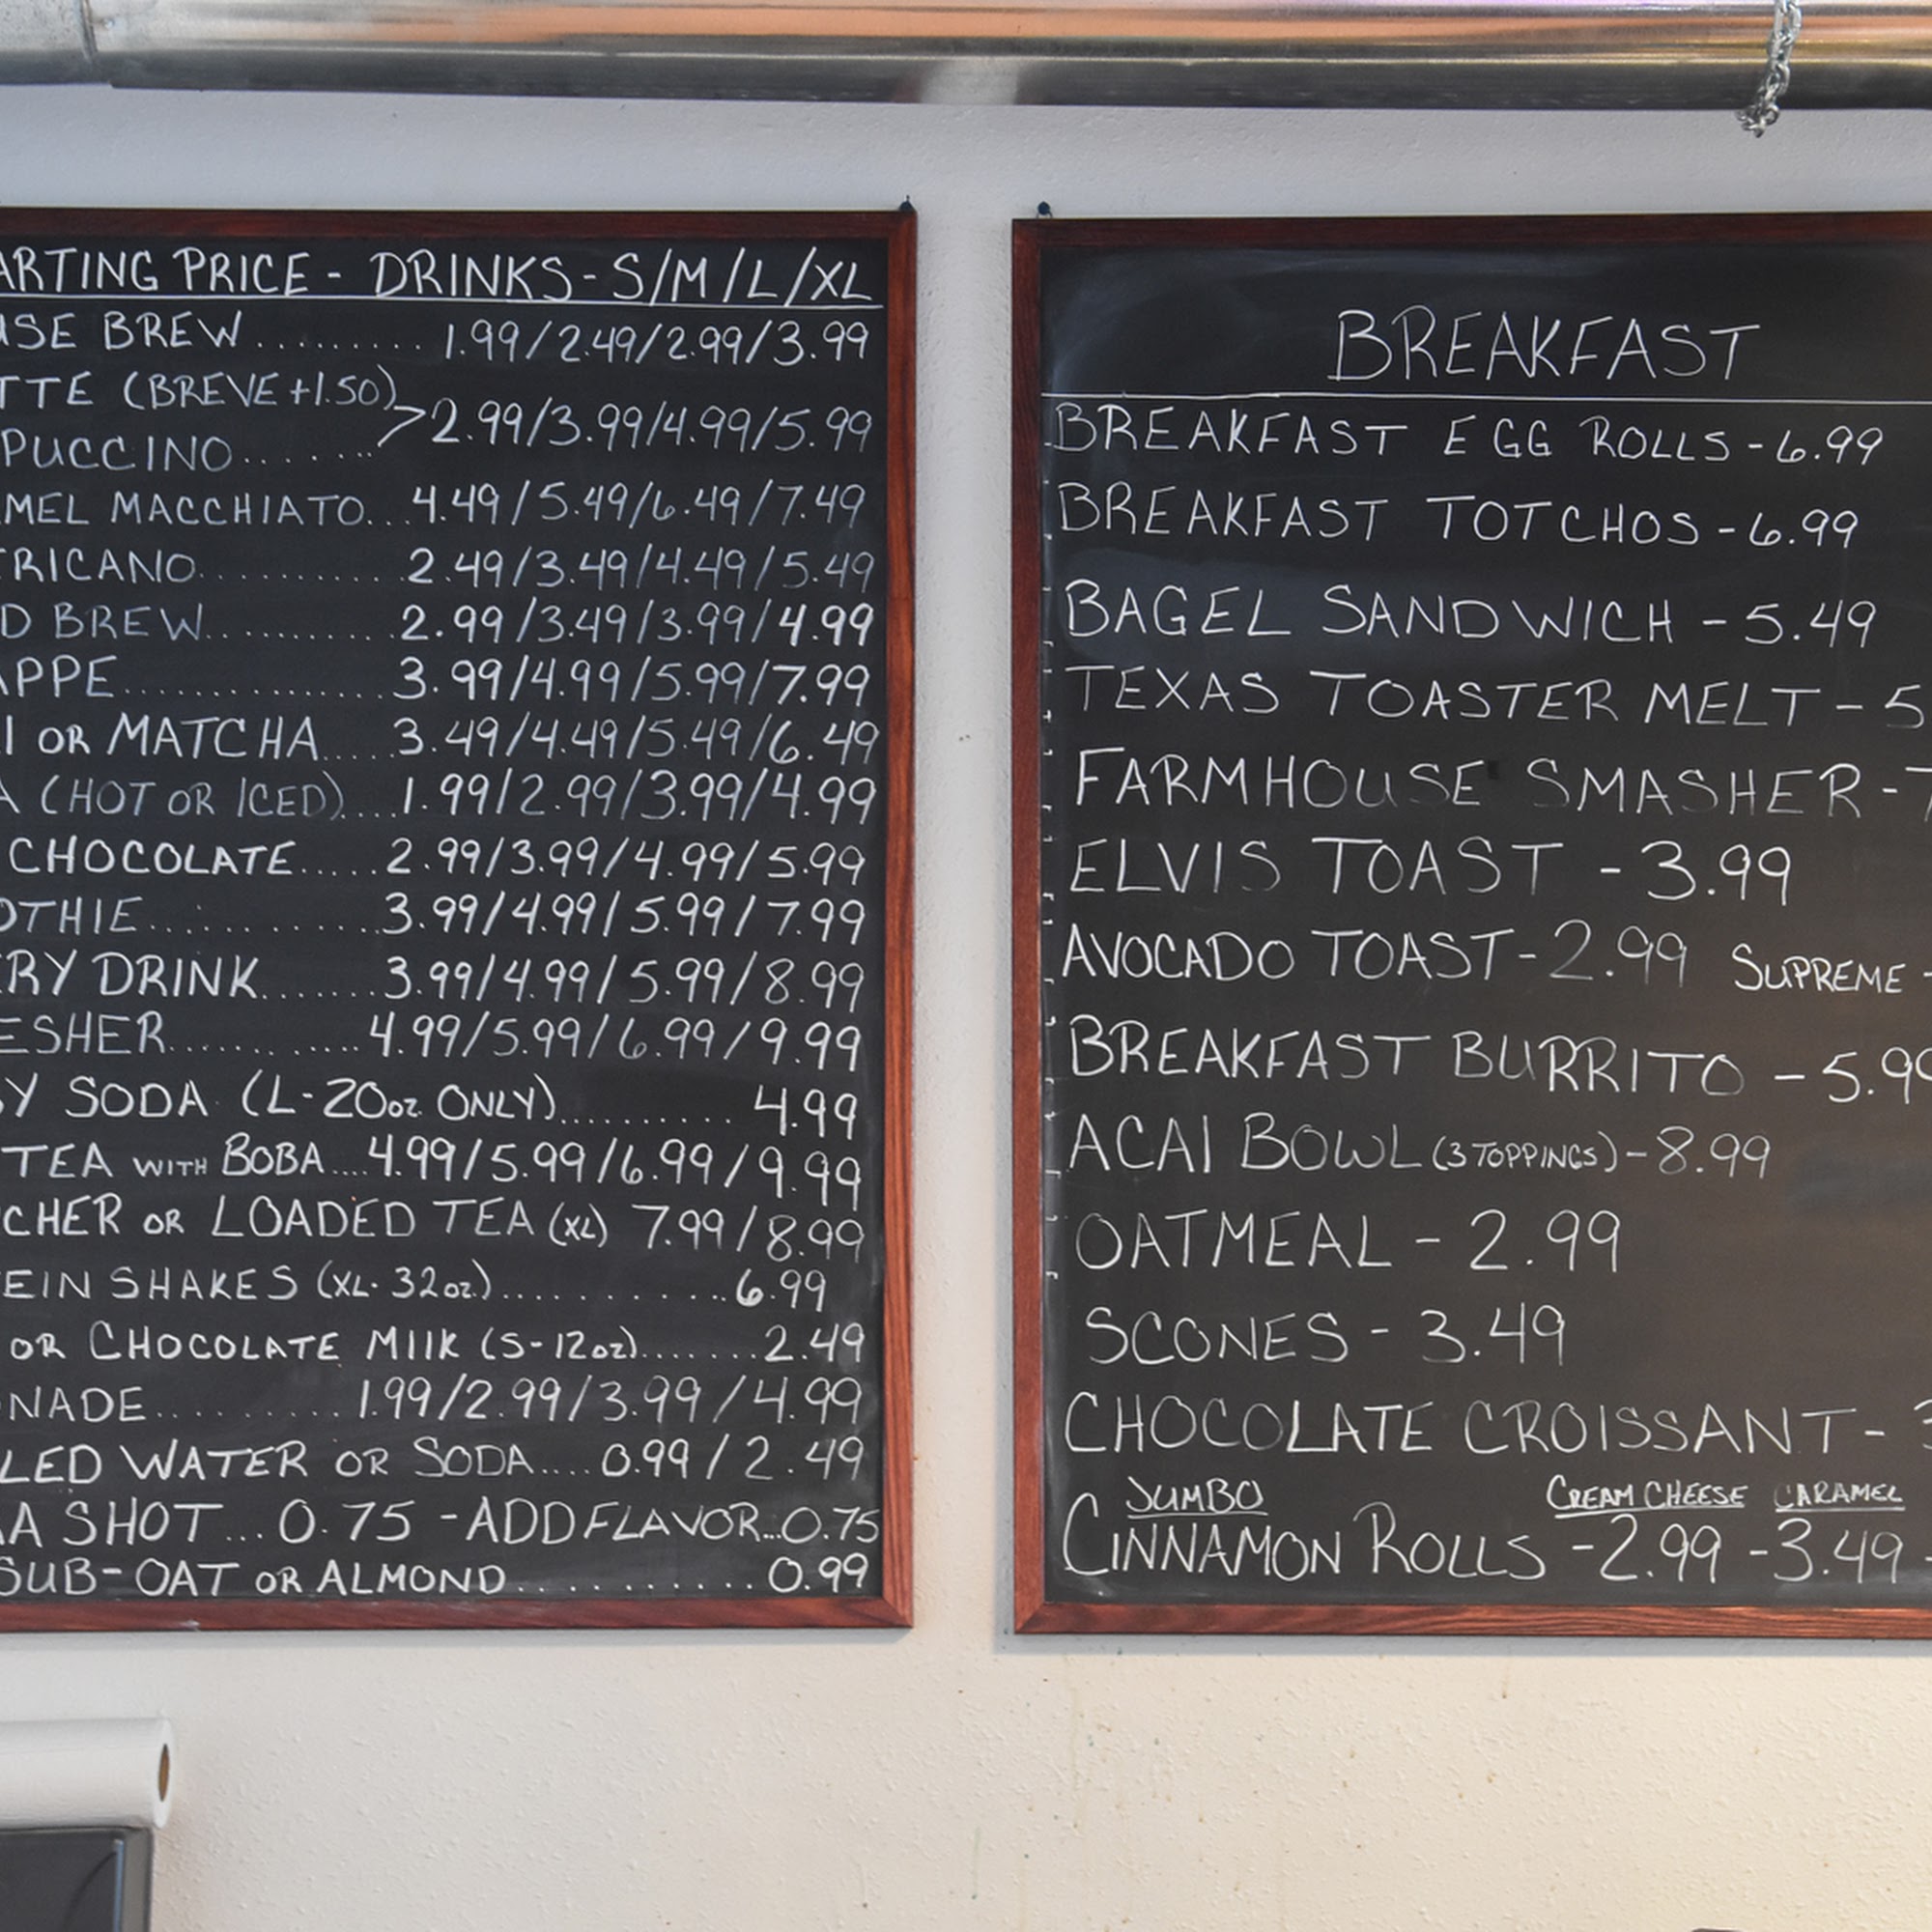 ARTING PRICE - DRINKS - S/M/L/XL
USE BREW......... 1.99/2.49/2.99/3.99
TTE (BREVE +1.50)
PUCCINO....... >2.99/3.99/4.99/5.99
MEL MACCHIATO...4.49/5.49/6.49/7.49
RICANO............2.49/3.49/4.49/5.49
D BREW...........2.99/3.49/3.99/4.99
APPE...............3.99/4.99/5.99/7.99
I OR MATCHA....3.49/4.49/5.49/6.49
A (HOT OR ICED)....1.99/2.99/3.99/4.99
CHOCOLATE.....2.99/3.99/4.99/5.99
OTHIE............3.99/4.99/5.99/7.99
RY DRINK.......3.99/4.99/5.99/8.99
ESHER............4.99/5.99/6.99/9.99
Y SODA (L-20oz. ONLY).......... 4.99
TEA WITH BOBA....4.99/5.99/6.99/9.99
CHER OR LOADED TEA (XL) 7.99/8.99
EIN SHAKES (XL-32oz.)...........6.99
OR CHOCOLATE MIlK (S-12oz).......2.49
NADE.......... 1.99/2.99/3.99/4.99
LED WATER OR SODA.... 0.99/2.49
A SHOT...0.75 - ADD FLAVOR...0.75
SUB-OAT OR ALMOND..........0.99
BREAKFAST
BREAKFAST EGG ROLLS - 6.99
BREAKFAST TOTCHOS - 6.99
BAGEL SANDWICH - 5.49
TEXAS TOASTER MELT - 5
FARMHOUSE SMASHER -
ELVIS TOAST - 3.99
AVOCADO TOAST - 2.99 SUPREME -
BREAKFAST BURRITO - 5.99
ACAI BOWL (3 TOPPINGS) - 8.99
OATMEAL - 2.99
SCONES - 3.49
CHOCOLATE CROISSANT -
JUMBO CREAM CHEESE CARAMEL
CINNAMON ROLLS - 2.99 - 3.49 -